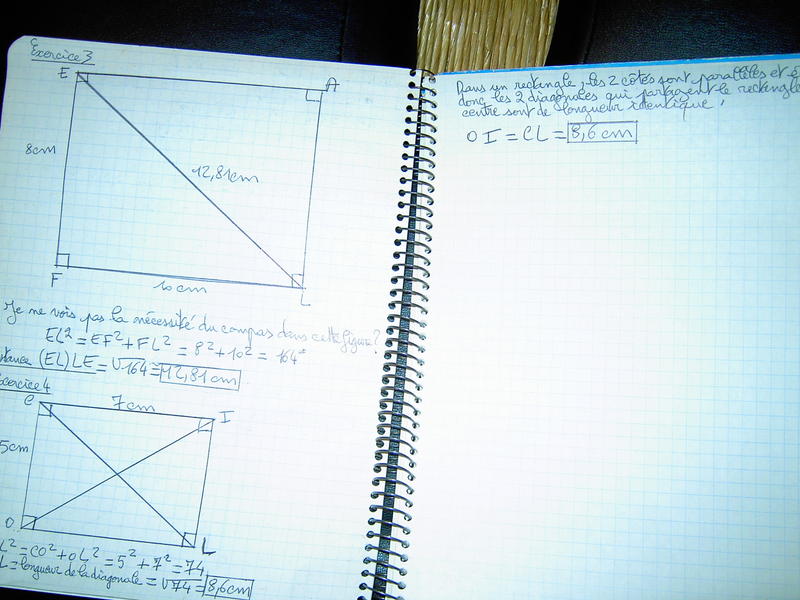 Exercice 3
E
A
8cm
12,81cm
F
10cm
L
Je ne vois pas la nécessité du compas dans cette figure?
EL² = EF² + FL² = 8² + 10² = 164
(EL) LE = √164 = 12,81 cm
Exercice 4
C
7cm
I
5cm
O
L
L² = CO² + OL² = 5² + 7² = 74
L = longueur de la diagonale = √74 = 8,6cm
Dans un rectangle, les 2 côtés sont parallèles et
donc les 2 diagonales qui partagent le rectangle
centre sont de longueur identique.
OI = CL = 8,6 cm